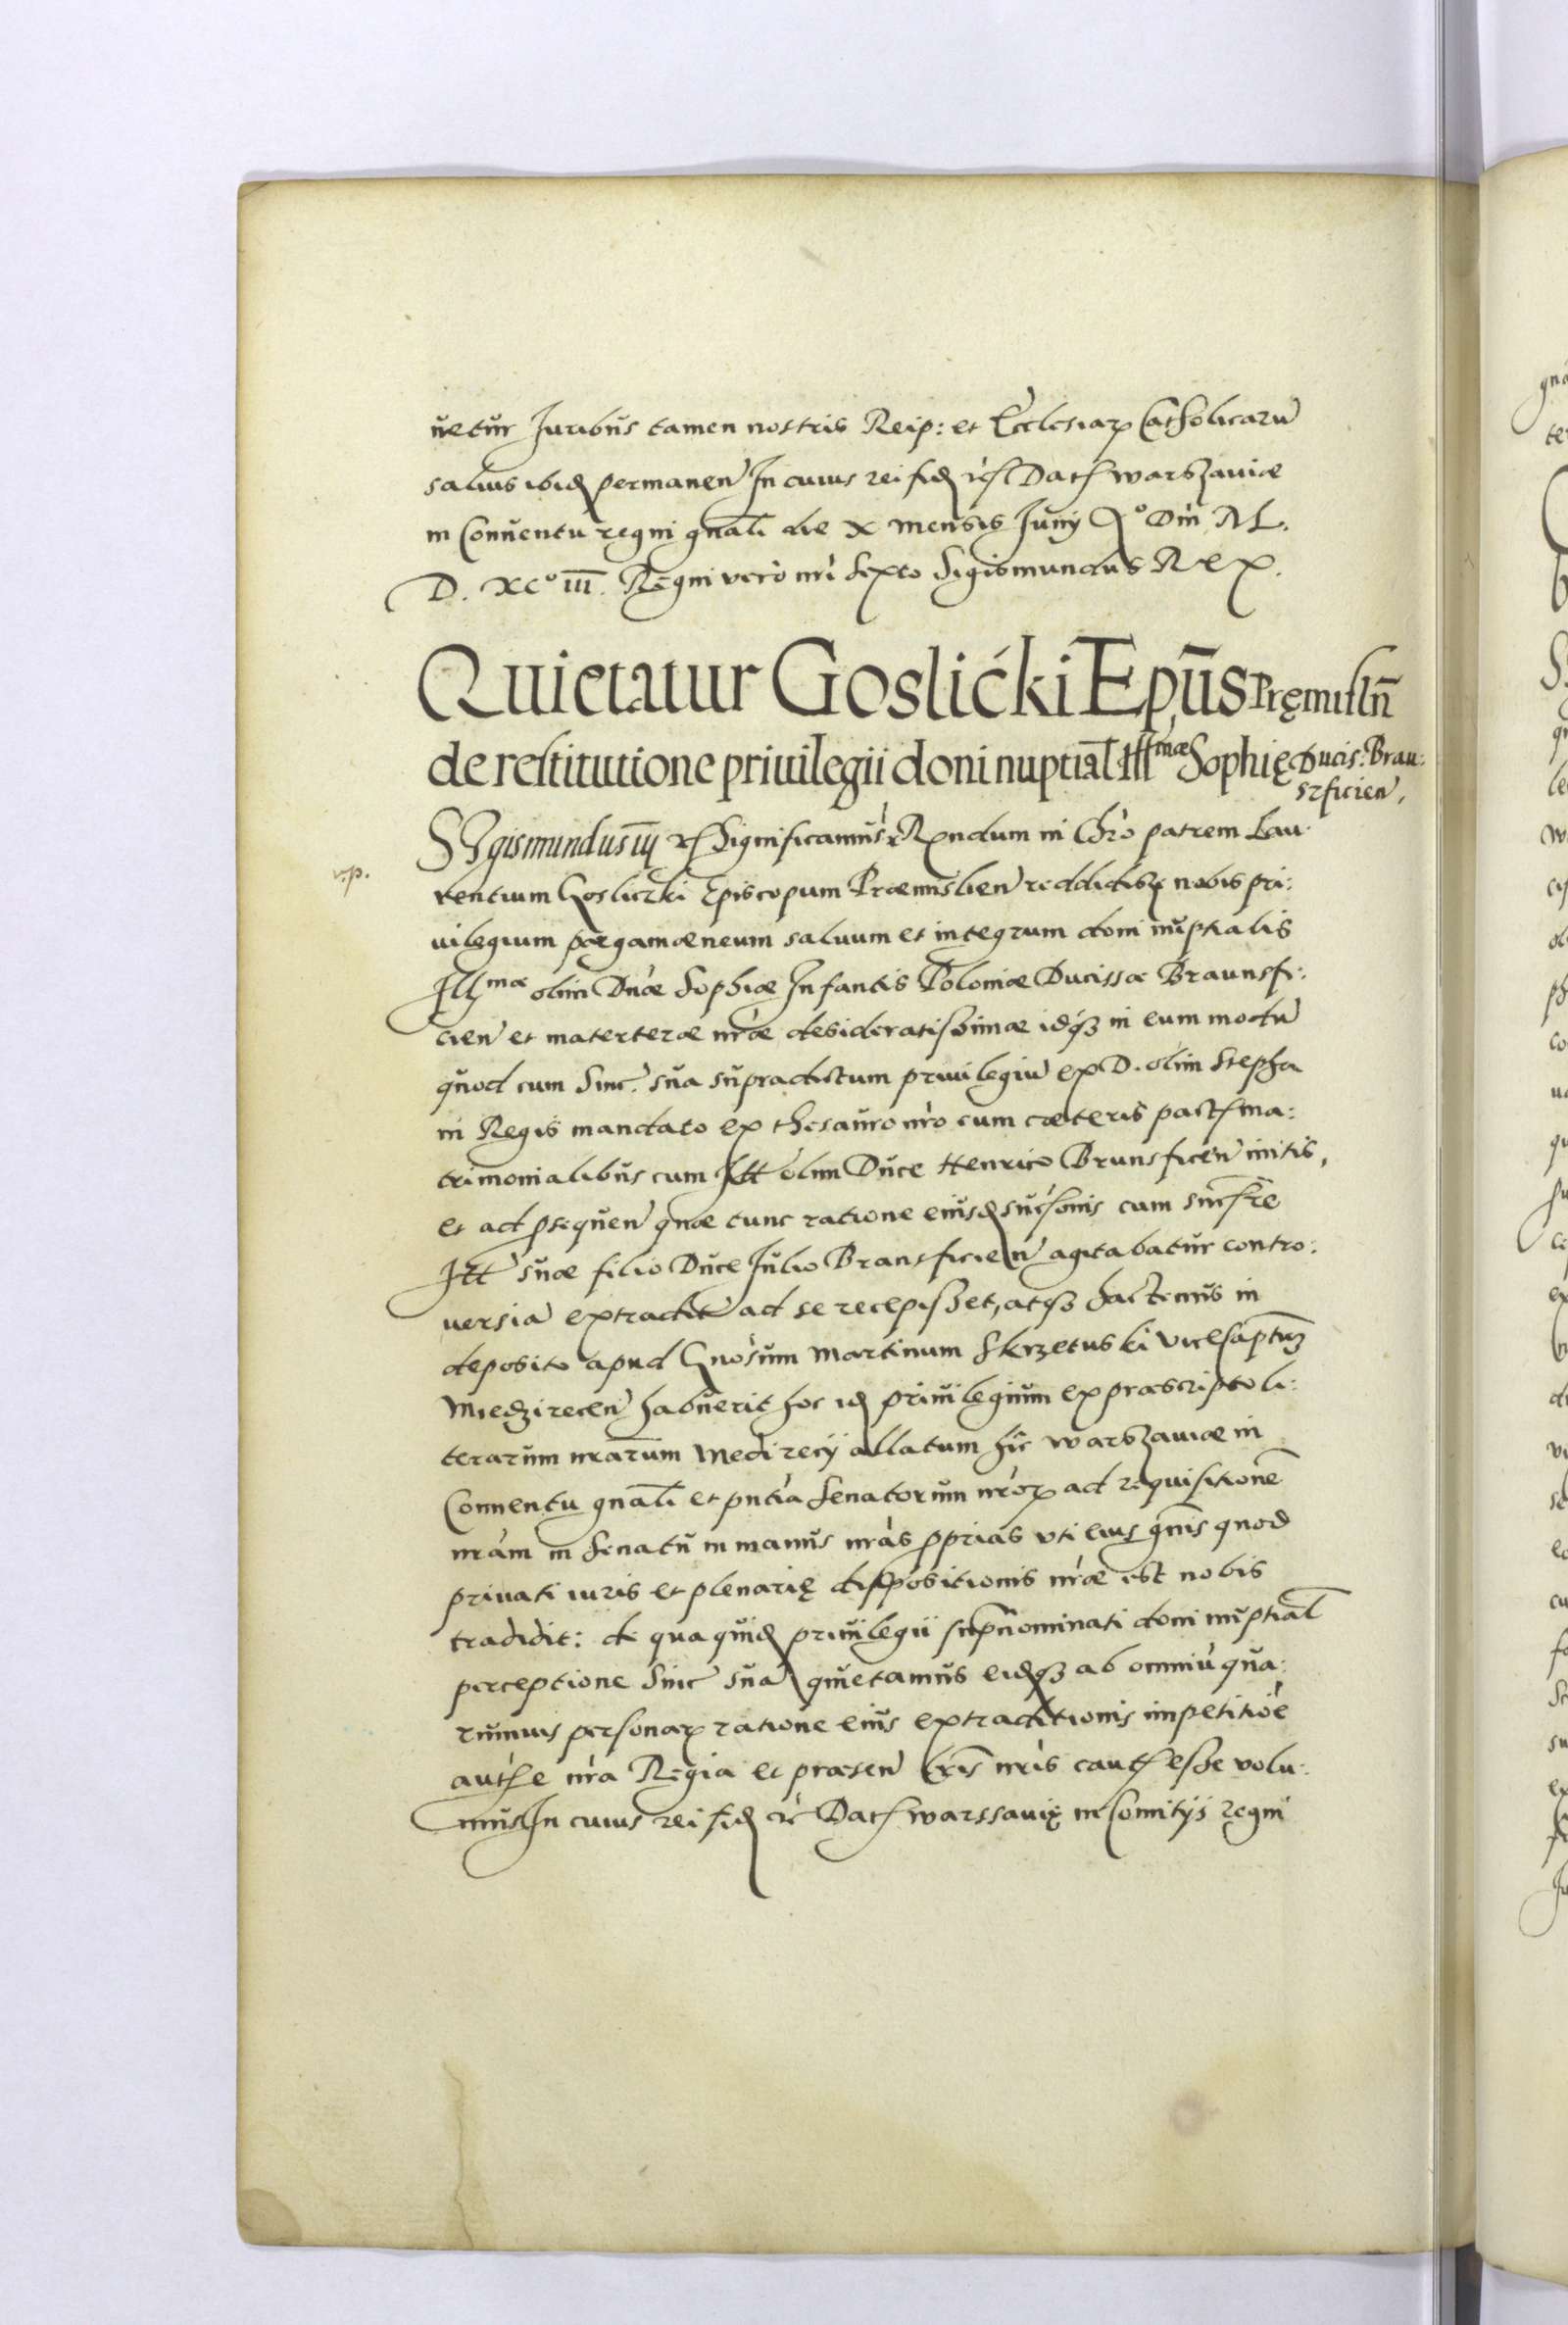 uetur Iuribus tamen nostris Reip: et Ecclesiarꝝ Catholicarũ
saluis ibiđ permanen̄ In cuius rei fiđ etc̃ Dat̃ Warszauiæ
in Conuentu regni gnãli die X mensis Iunij Aº Dñi M.
D. XCº III. Regni vero nr̃i sexto Sigismundus Rex.
Quietatur Goslićki Epũs Pręmisln̄
de restitutione priuilegii doni nuptial̃ Illmæ Sophię Ducis: Brau:
szficien̄,
SYgismundus iij etc̃ Significamus etc̃ Rx̃ndum in Chr̃o patrem Lau-
v.p.
rentium Gosliczki Episcopum Præmislien̄ reddidisse nobis pri:
uilegium pargamæneum saluum et integrum doni nuptialis
Illmæ olim Dn̄æ Sophiæ Infantis Poloniæ Ducissæ Braunsfi:
cien̄ et materteræ nr̃æ desideratissimæ idq́ꝫ in eum modũ
quod cum Sinc̃. sua supradictum priuilegiũ ex D. olim Stepha
ni Regis mandato ex thesauro nr̃o cum cæteris pact̃ ma:
trimonialibus cum Ill̃ olim Duce Henrico Brunsficen̄ initis,
et ad ꝓsequen̄ quæ tunc ratione eiusđ succ̃ionis cum
Ill̃ suæ filio Duce Iulio Bransficien̄ agitabatur contro:
uersiã extradit̃ ad se recepisset, atqꝫ hactenus in
deposito apud Gnõsum Martinum Skrzetuski Vicecaptũꝫ
Miedzirecen̄ habuerit hoc iđ priuilegium ex præscripto li:
terarum nr̃arum Medirecij allatum hîc Warszauiæ in
Conuentu gnãli et pn̄tia Senatorum nr̃orꝝ ad requisitionẽ
nr̃am in Senatu in manus nr̃as ꝓprias vti eius gn̄is quod
priuati iuris et plenarię dispositionis nr̃æ est nobis
tradidit: de qua quiđ priuilegii supn̄ominati doni nuptial̃
perceptione Sinc̃ suã quietamus eiđqꝫ ab omniũ qua:
rumuis personarꝝ ratione eius extraditionis impetitiõe
auth̃e nr̃a Regia et præsen̄ lr̃is nr̃is caut̃ esse volu-
mus In cuius rei fiđ etc̃ Dat̃ Warssauię in Comitijs regni